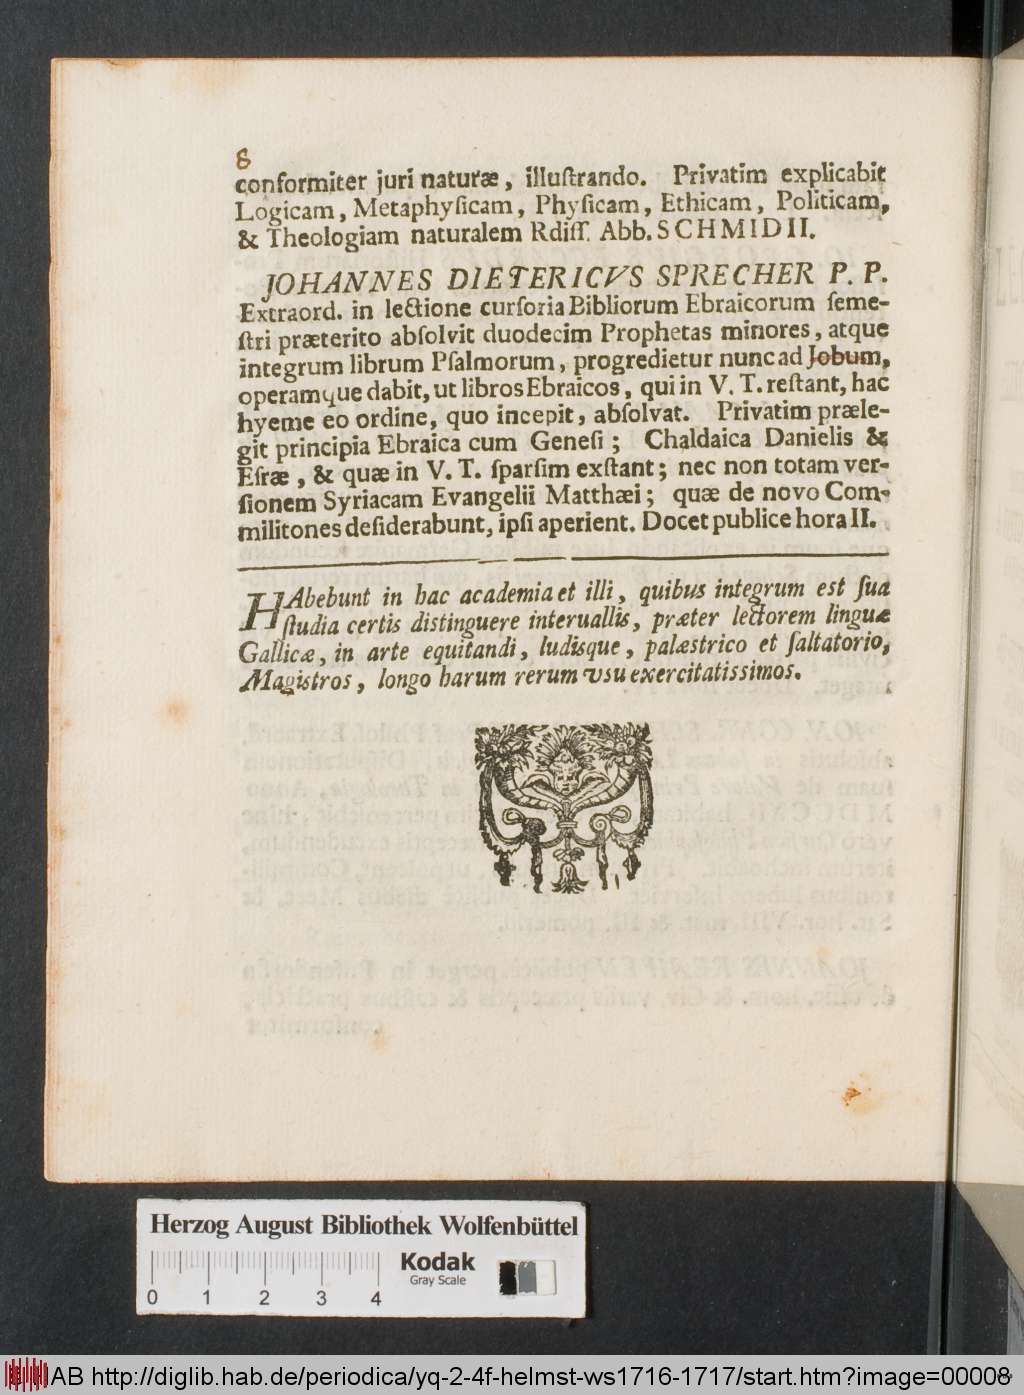 8
conformiter juri naturæ, illuſtrando. Privatim explicabit
Logicam, Metaphyſicam, Phyſicam, Ethicam, Politicam,
& Theologiam naturalem Rdiſſ. Abb. SCHMIDII.
JOHANNES DIETERICVS SPRECHER P. P.
Extraord. in lectione curſoria Bibliorum Ebraicorum ſeme-
ſtri præterito abſolvit duodecim Prophetas minores, atque
integrum librum Pſalmorum, progredietur nunc ad Jobum,
operamque dabit, ut libros Ebraicos, qui in V. T. reſtant, hac
hyeme eo ordine, quo incepit, abſolvat. Privatim præle-
git principia Ebraica cum Geneſi; Chaldaica Danielis &
Eſræ, & quæ in V. T. ſparſim exſtant; nec non totam ver-
ſionem Syriacam Evangelii Matthæi; quæ de novo Com-
militones deſiderabunt, ipſi aperient. Docet publice hora II.
HAbebunt in hac academia et illi, quibus integrum est ſua
ſtudia certis distinguere interuallis, præter lectorem linguæ
Gallicæ, in arte equitandi, ludisque, palæstrico et ſaltatorio,
Magistros, longo harum rerum vsu exercitatissimos.
Herzog August Bibliothek Wolfenbüttel
Kodak
Gray Scale
0 1 2 3 4
HAB http://diglib.hab.de/periodica/yq-2-4f-helmst-ws1716-1717/start.htm?image=00008